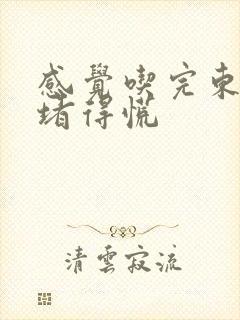 感覺喫完東
堵得慌
清雲寂流